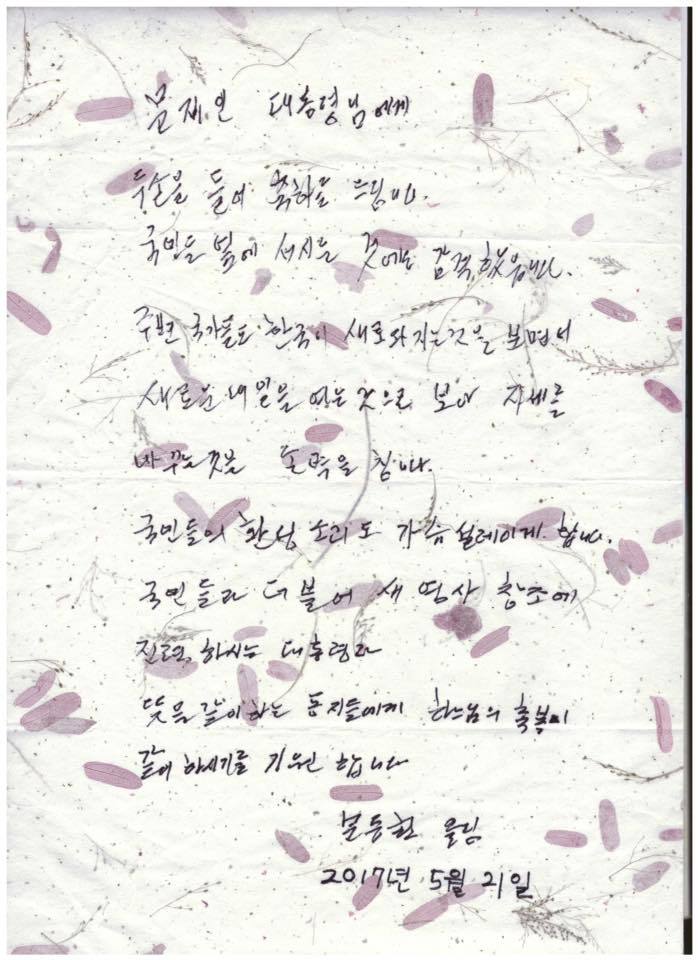 문재인 대통령님에게
두손을 들어 축하를 드립니다.
국민들 앞에 서시는 것에는 감격했읍니다.
주변 국가들도 한국이 새로와지는것을 보면서
새로운 내일을 여는 것으로 보아 자세를
바꾸는것은 손벽을 침니다.
국민들의 환성 소리도 가슴 설레이게 합니다.
국민들과 더불어 새 역사 창조에
진력하시는 대통령과
뜻을 같이하는 동지들에게 하느님의 축복이
같이 하시기를 기원 합니다
동환 올림
2017년 5월 21일